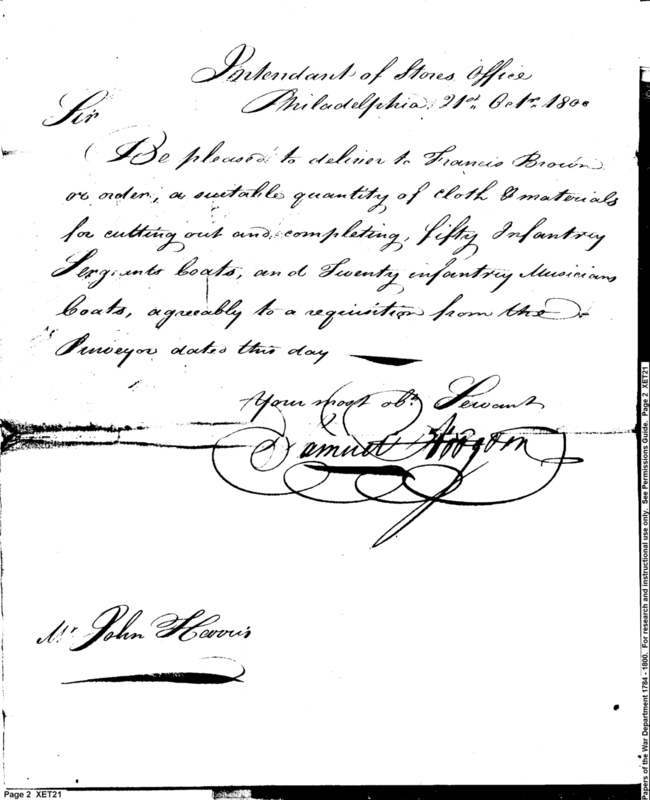 Intendant of Stores Office
Philadelphia 21st. Octr. 1800
Sir
Be pleased to deliver to Francis Brown
or order, a suitable quantity of cloth & materials
for cutting out and completing, fifty Infantry
Sergeants Coats, and Twenty infantry Musicians
Coats, agreeably to a requisition from the
Purveyor dated this day
Your most obt. Servant
Samuel Hodgdon
Mr John Harris
Page 2 XET21
Papers of the War Department 1784 - 1800. For research and instructional use only. See Permissions Guide. Page 2 XET21